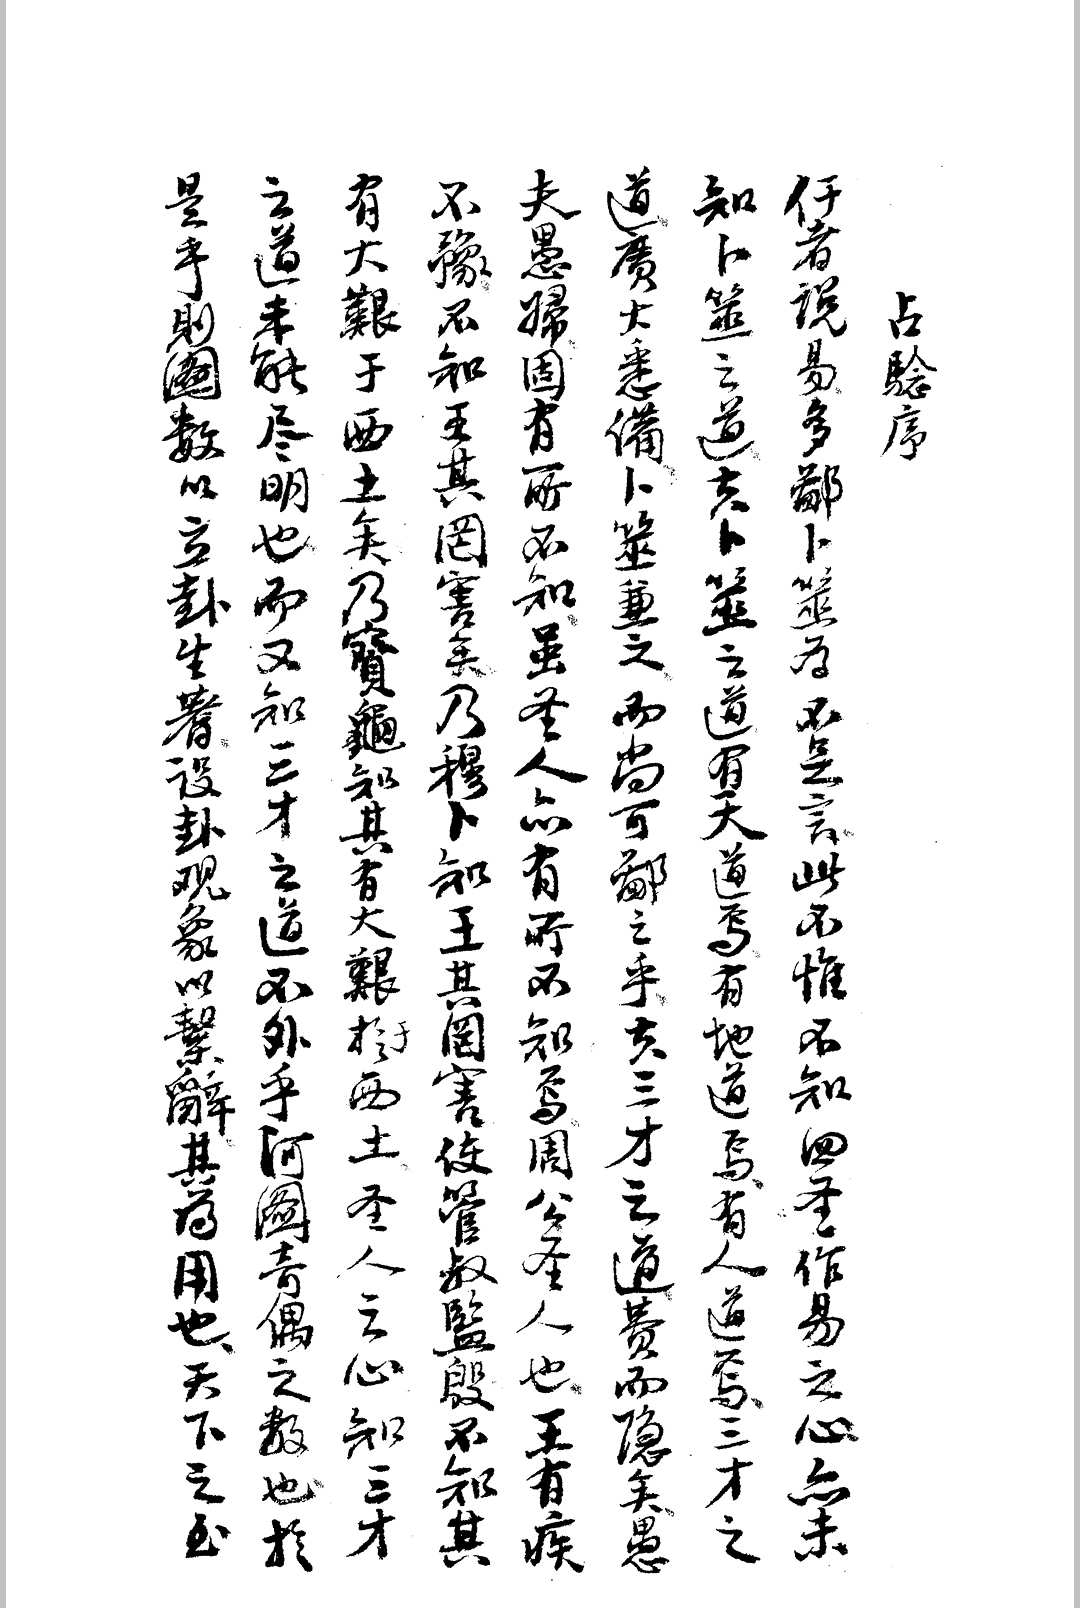 占驗序
仔者説易多鄙卜筮為不足言此不惟不知四圣作易之心亦未
知卜筮之道夫卜筮之道有天道焉有地道焉有人道焉三才之
道廣大悉備卜筮兼之而尚可鄙之乎夫三才之道費而隐矣愚
夫愚婦固有所不知虽圣人亦有所不知焉周公圣人也王有疾
不豫不知王其罔害矣乃穆卜知王其罔害使管叔監殷不知其
有大艱于西土矣乃寳龜知其有大艱於于西土圣人之心知三才
之道未能尽明也而又知三才之道不外乎河圖奇偶之数也於
是乎則圖数以立卦生蓍设卦观象以繫辭其為用也天下之至